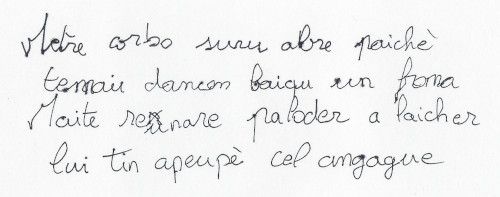 Metre corbo suru abre paiché
temair dancon baiqu un froma
Maite renare paloder a laicher
lui tin apeupè cel angague